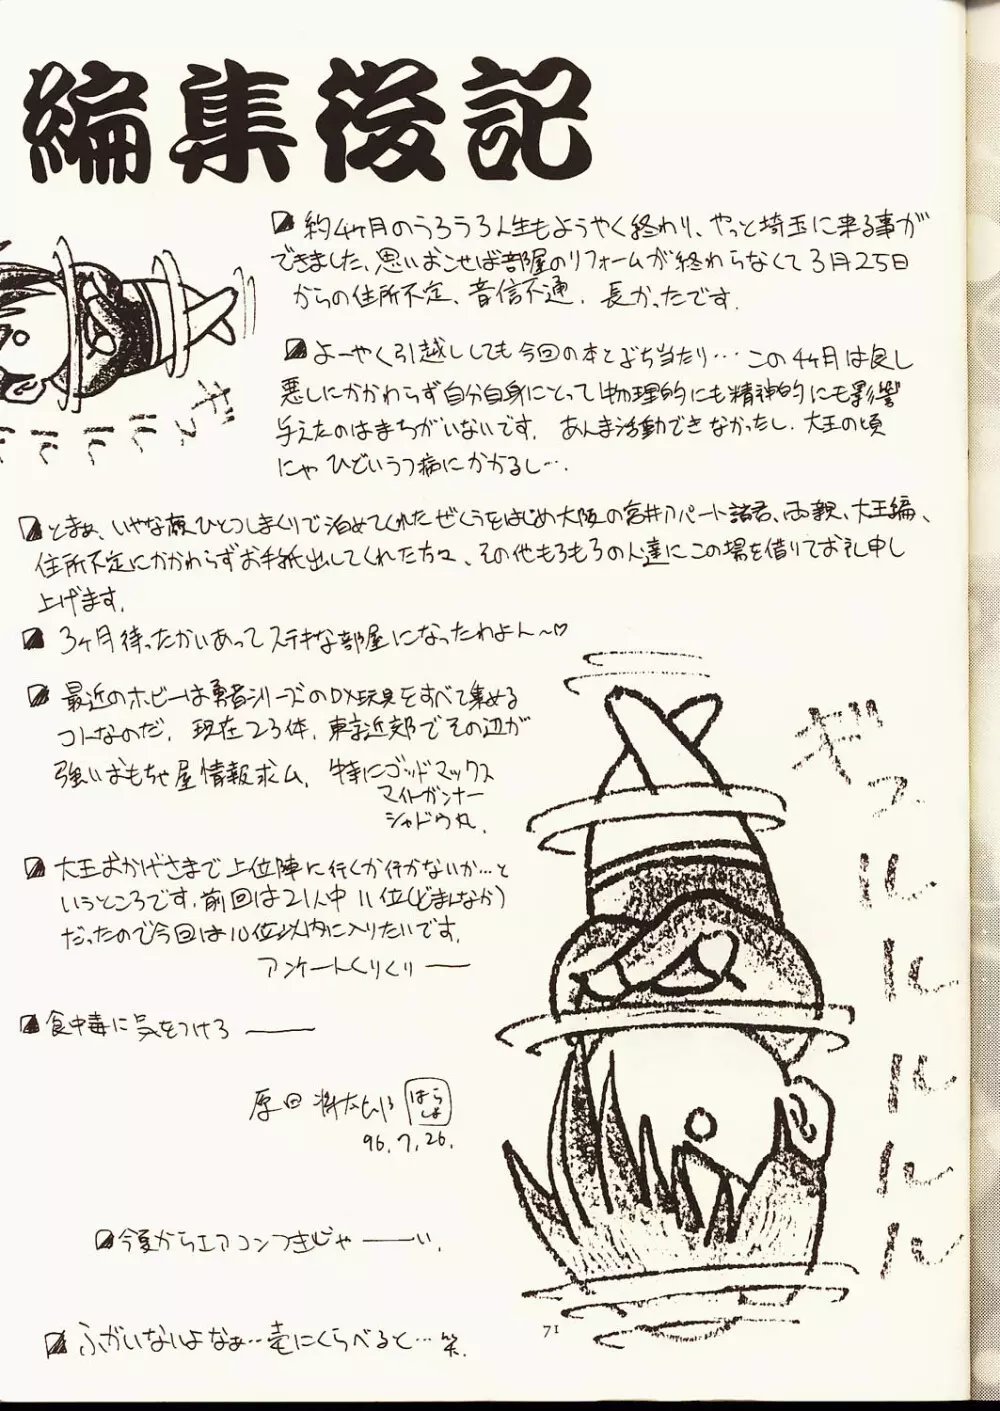 編集後記
約4ヶ月のうろうろ人生もようやく終わり、やっと埼玉に来る事が
できました、思いおこせば部屋のリフォームが終わらなくて3月25日
からの住所不定、音信不通、長かったです.
よーやく引越ししても今回の本とぶち当たり…この4ヶ月は良し
悪しにかかわらず自分自身にとって物理的にも精神的にも影響
与えたのはまちがいないです. あんま活動できなかったし、大王の頃
にゃひどいうつ病にかかるし….
とまぁ、いやな顔ひとつしまくりで泊めてくれたぜくうをはじめ大阪の宮井アパート諸君、両親、大王編、
住所不定にかかわらずお手紙出してくれた方々、その他もろもろの人達にこの場を借りてお礼申し
上げます.
3ヶ月待ったかいあってステキな部屋になったわよん〜♡
最近のホビーは勇者シリーズのDX玩具をすべて集める
コトなのだ. 現在23体. 東京近郊でその辺が
強いおもちゃ屋情報求ム. 特にゴッドマックス
マイトガンナー
シャドウ丸.
大王おかげさまで上位陣に行くか行かないか…と
いうところです. 前回は21人中11位(どまんなか)
だったので今回は10位以内に入りたいです.
アンケートくりくりー
食中毒に気をつけろ――
原田将太郎
はらしょ
96.7.26.
今夏からエアコンつきじゃ――い.
ふがいないよなぁ…昔にくらべると…笑.
ギュ
ギュルルルルル
71